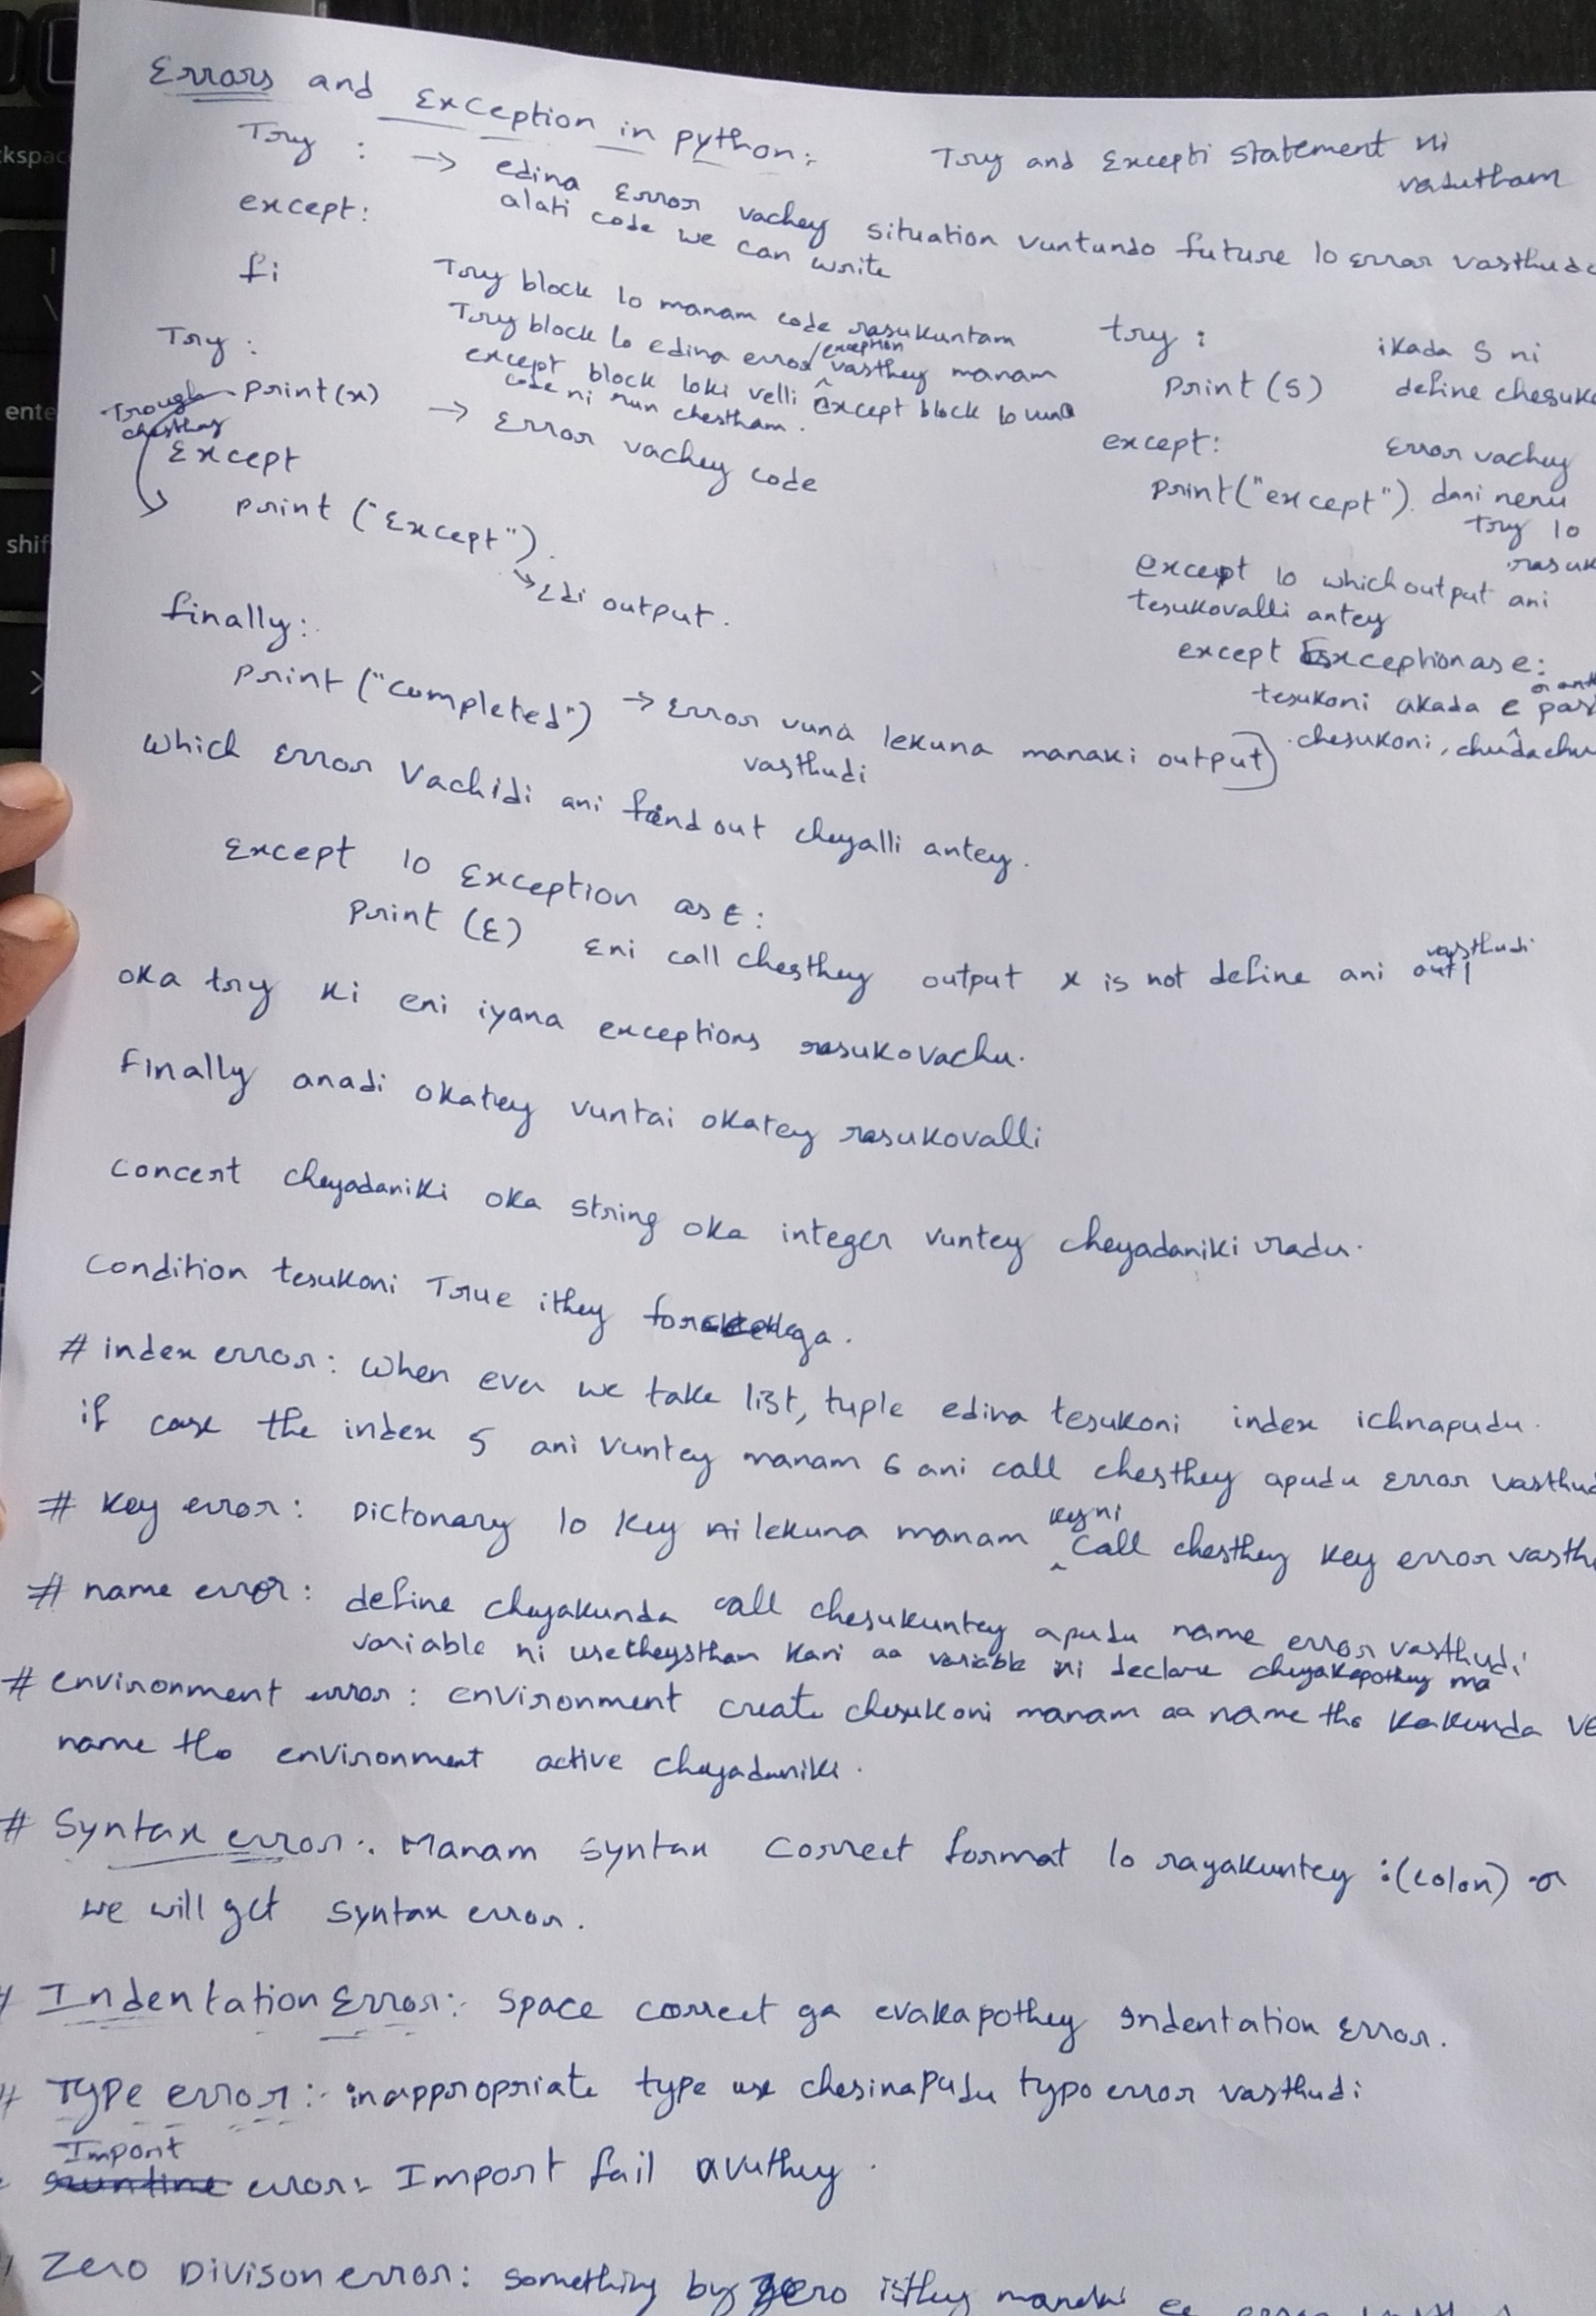 Errors and Exception in python:
Try and Excepti statement ni
vasutham
Try : → edina Error vachey situation vuntundo future lo error
alati code we can write
except:
fi
Try block lo manam code rasukuntam
Try block lo edina error/exception vasthey manam
except block loki velli except block lo
code ni run chestham.
Try :
print(x) → Error vachey code
Except
print ("Except").
↘ Edi output.
finally:
print ("completed") → Error vuna lekuna manaki output)
vasthudi
try :
print (S)
ikada S ni
define
except:
print("except").
Error vachey
dani nenu
try lo
except lo which output ani
tesukovalli antey
except Exception as e:
tesukoni akada e
chesukoni,
which Error vachidi ani find out cheyalli antey.
Except lo Exception as E:
print (E) Eni call chesthey output x is not define ani vasthudi
oka try ki eni iyana exceptions rasukovachu.
Finally anadi okatey vuntai okatey rasukovalli
concert cheyadaniki oka string oka integer vuntey cheyadaniki radu.
condition tesukoni True ithey
# index error: when ever we take list, tuple edina tesukoni index ichnapudu.
if case the index 5 ani vuntey manam 6 ani call chesthey apudu error
# key error: Dictonary lo key ni lekuna manam key ni call chesthey key error
# name error: define cheyakunda call chesukuntey apudu name error vasthudi
variable ni kani aa variable ni declare cheyakapothey
# environment error: environment create chesukoni manam aa name tho kakunda
name tho environment active cheyadaniki.
# Syntax error:. Manam syntax correct format lo rayakuntey :(colon)
we will get syntax error.
# Indentation Error:- Space correct ga evakapothey Indentation Error.
# Type error:- inappropriate type use chesinapudu typo error vasthudi
Import error:- Import fail avuthey.
# Zero Divison error: something by zero